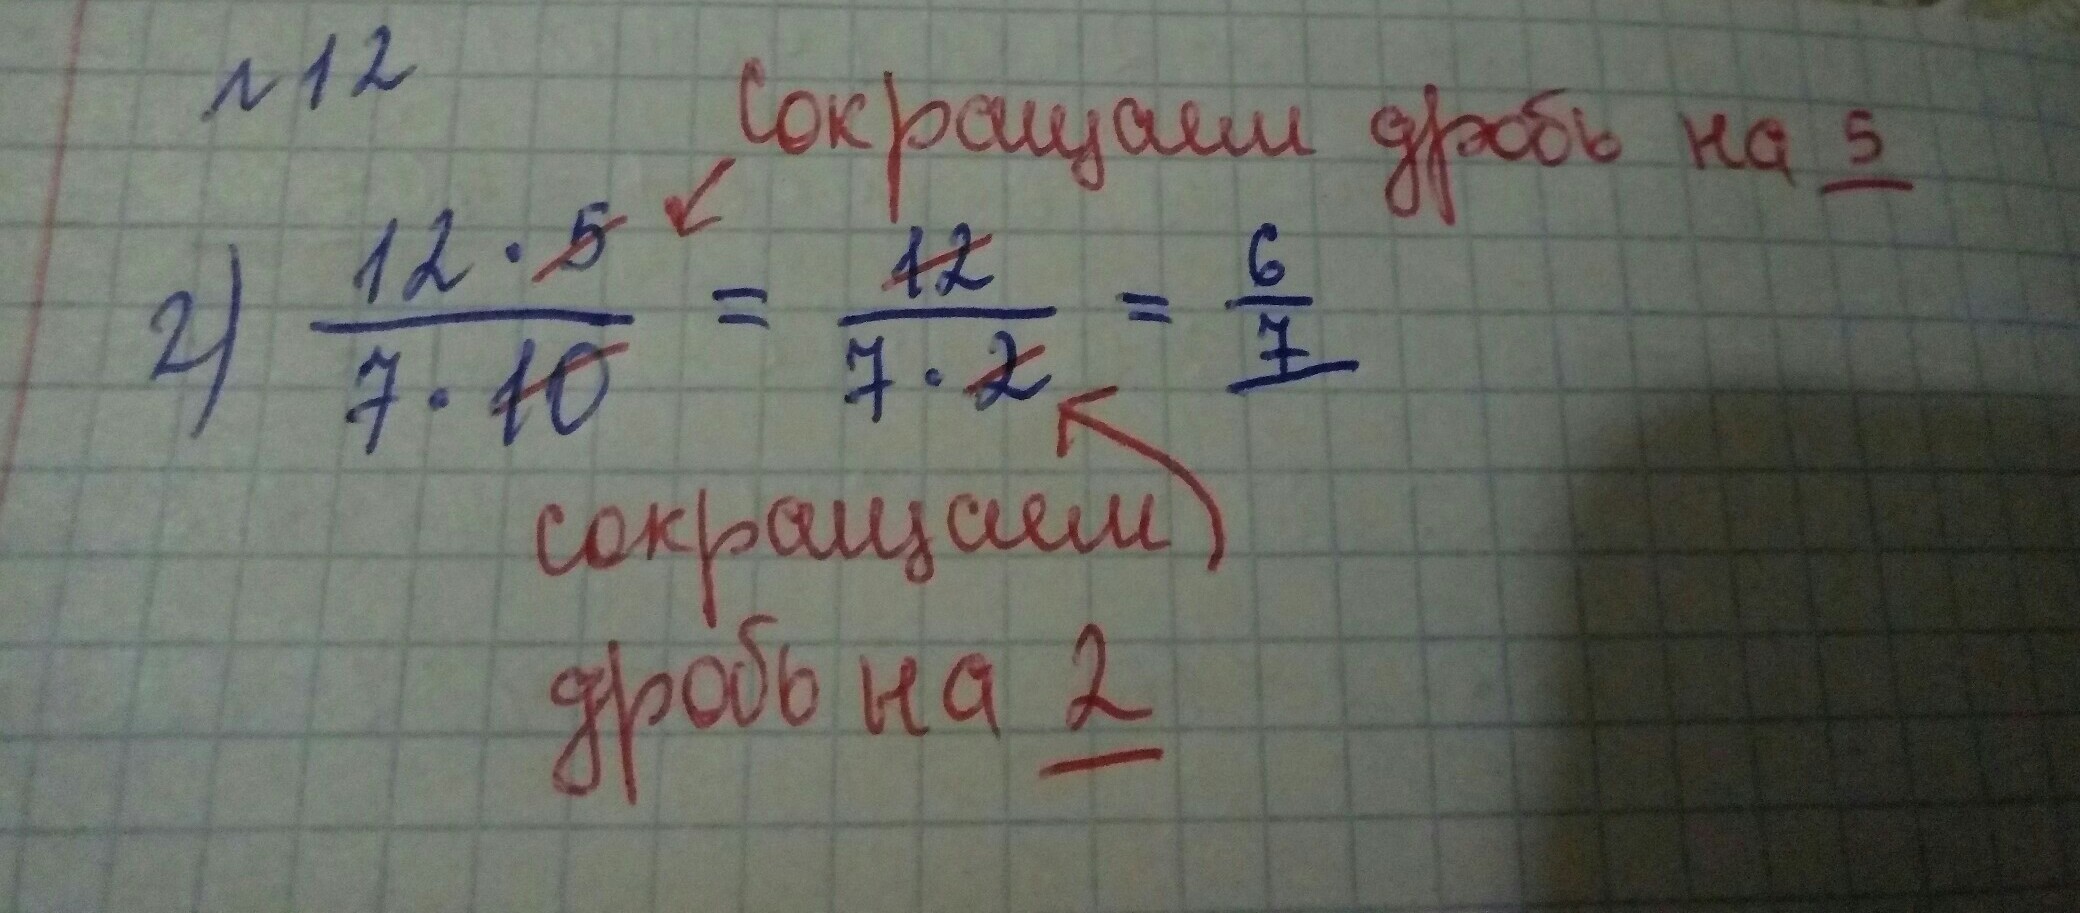 №12
Сокращаем дробь на 5
2) 12 · 5 / 7 · 10 = 12 / 7 · 2 = 6 / 7
сокращаем
дробь на 2